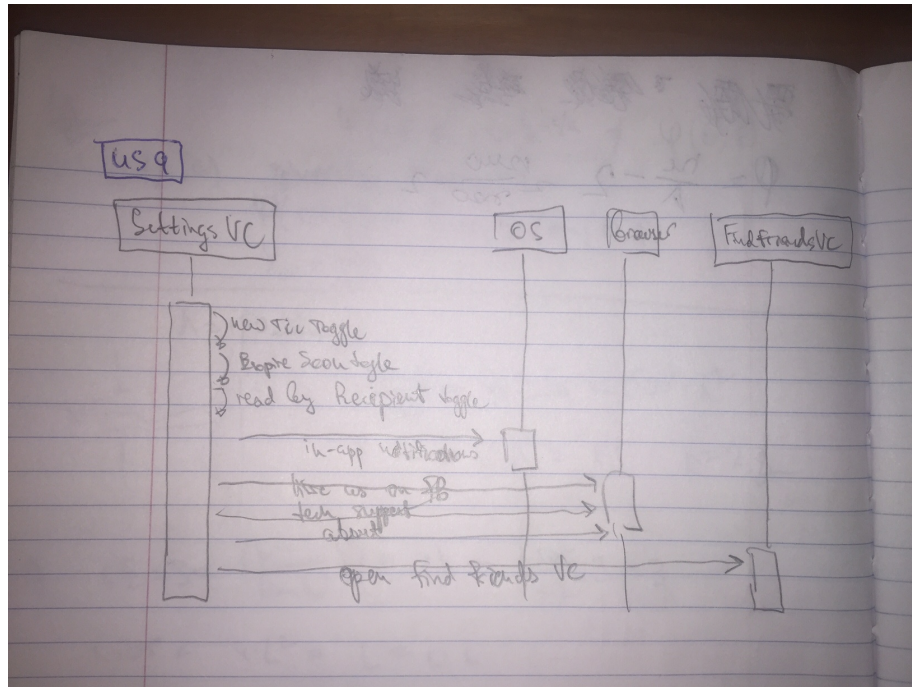 US 9
Settings VC
OS
Browser
FindFriendsVC
new Tic Toggle
Expire Soon Toggle
read by Recipient toggle
in-app notifications
like us on FB
tech support
about
open find friends VC